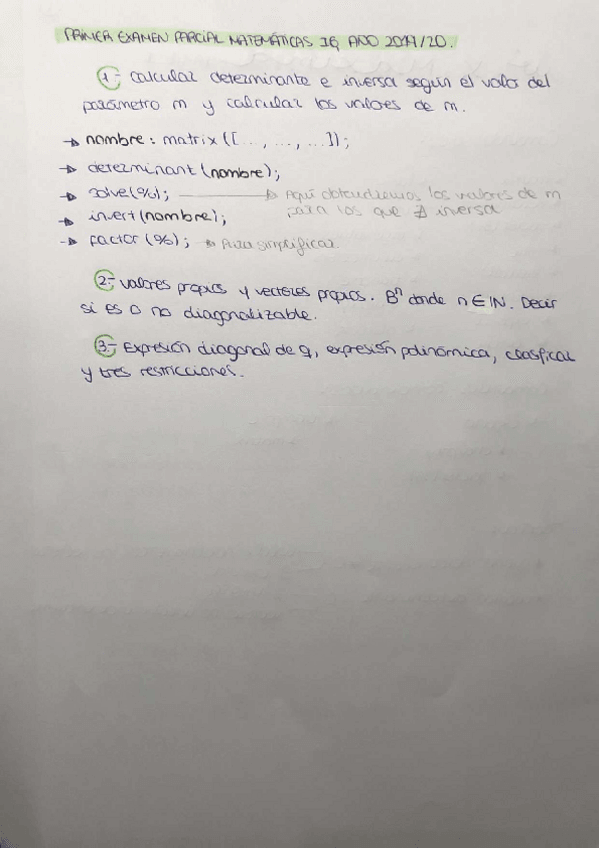 PRIMER EXAMEN PARCIAL MATEMÁTICAS IQ AÑO 2019/20.
1.- Calcular determinante e inversa según el valor del
parámetro m y calcular los valores de m.
→ nombre: matrix([..., ..., ...]);
→ determinant(nombre);
→ solve(%); → Aquí obtendremos los valores de m
para los que ∄ inversa
→ invert(nombre);
→ factor(%); → Para simplificar.
2.- valores propios y vectores propios. Bⁿ donde n ∈ IN. Decir
si es o no diagonalizable.
3.- Expresión diagonal de q, expresión polinómica, clasificar
y tres restricciones.